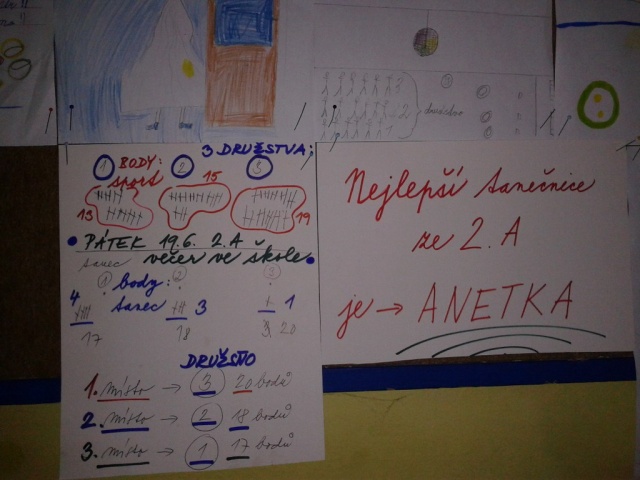 družstvo
3 DRUŽSTVA:
1 BODY: 2 3
sport 15
13 19
PÁTEK 19.6. 2.A
tanec večer ve škole
1 body: 2 3
4 tanec 3 1
17 18 3. 20
DRUŽSTVO
1. místo → 3 20 bodů
2. místo → 2 18 bodů
3. místo → 1 17 bodů
Nejlepší tanečnice
ze 2. A
je → ANETKA